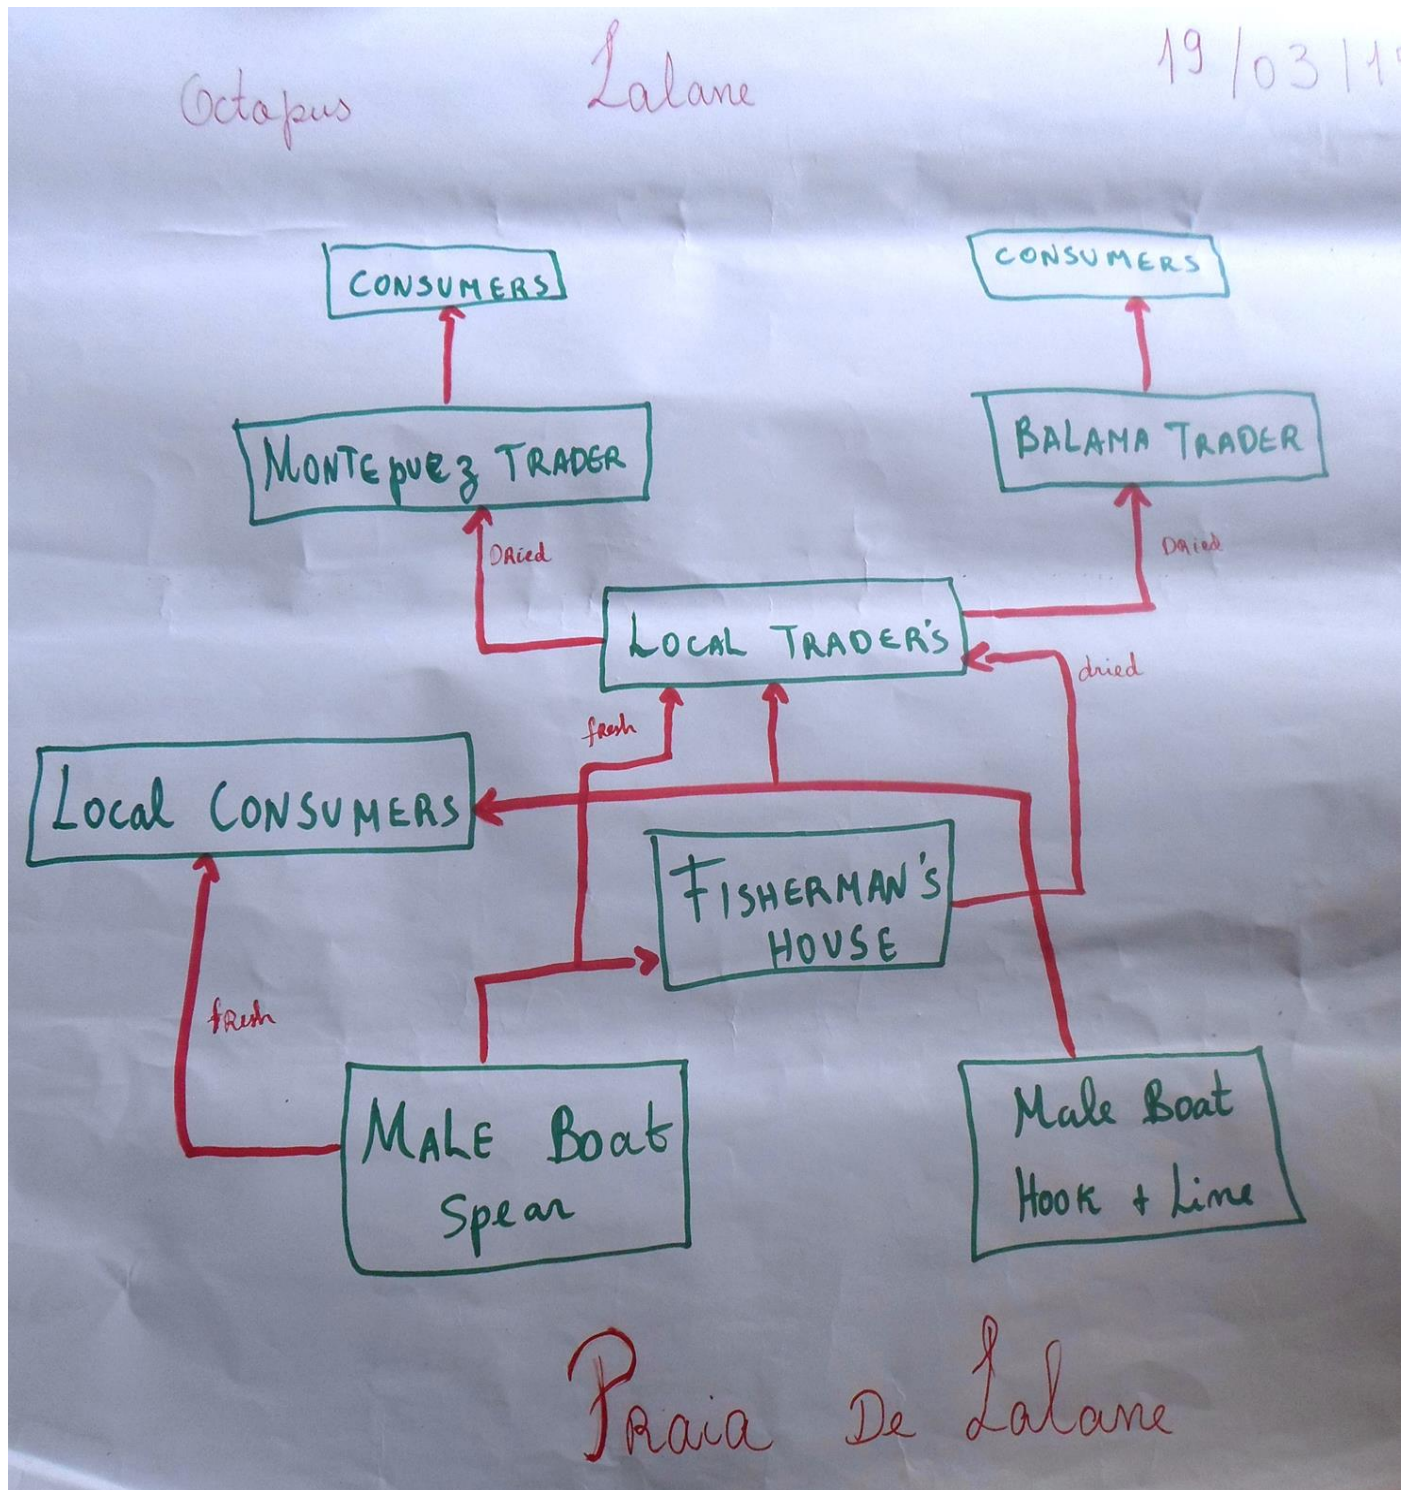 Octopus Lalane 19/03/1
CONSUMERS CONSUMERS
MONTEpUEz TRADER BALAMA TRADER
DRied DRied
LOCAL TRADER'S
dried
fresh
Local CONSUMERS
FISHERMAN'S
HOUSE
fresh
MALE Boat
Spear
Male Boat
Hook + Line
PRaia De Lalane